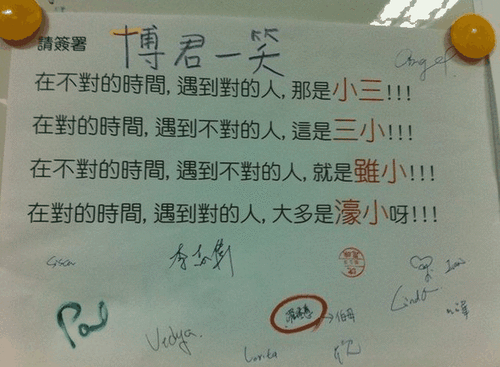 請簽署
博君一笑
在不對的時間,遇到對的人,那是小三!!!
在對的時間,遇到不對的人,這是三小!!!
在不對的時間,遇到不對的人,就是雖小!!!
在對的時間,遇到對的人,大多是濠小呀!!!
Paul
Vedya
Linda
伯母